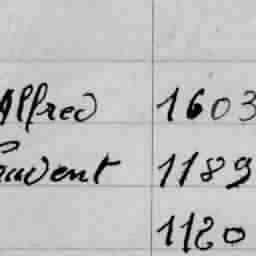 Alfred 1603
1189
1120